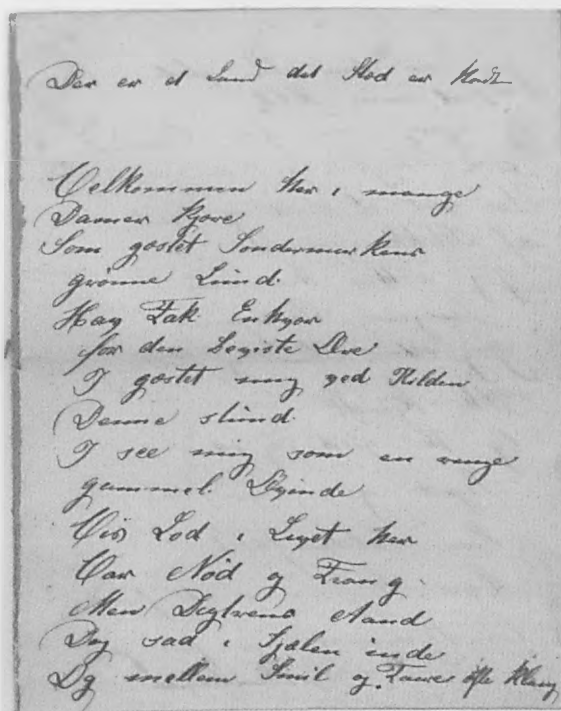 Der er et Land det Sted er
Velkommen her i mange
Damer kjære
Som gæstet Søndermarkens
grønne Lund.
Hav Tak Enhver
for den beviste Ære
I gæstet mig ved Kilden
Denne stund.
I see mig som en
gammel Qvinde
Vis Lod i Livet her
Var Nød og Trang.
Men Digtrens Aand
Dog sad i Sjælen inde
Og mellem Smil og Taare ofte klang